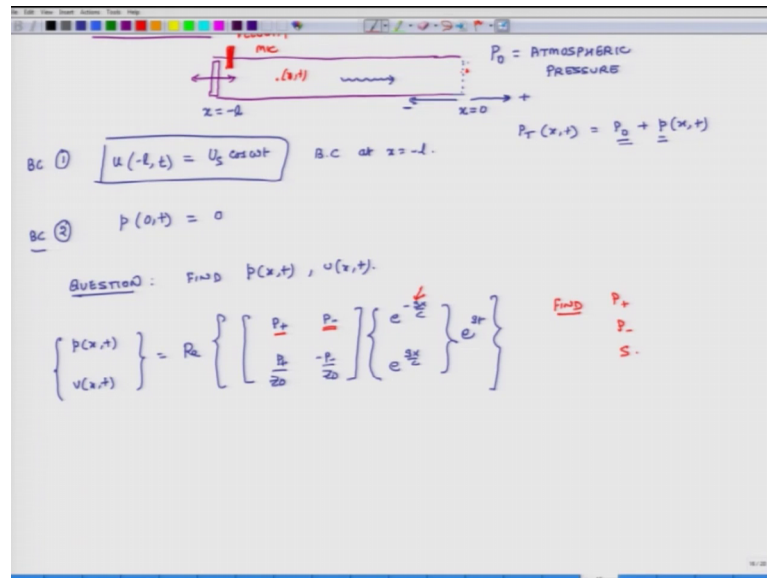 File Edit View Insert Actions Tools Help
VELOCITY
MIC
.(x,t)
x = -l
x = 0
- +
P₀ = ATMOSPHERIC
PRESSURE
P_T (x,t) = P₀ + p(x,t)
BC ① u(-l,t) = U_s cos ωt B.C at x = -l.
BC ② p(0,t) = 0
QUESTION: FIND p(x,t), u(x,t).
{ p(x,t) v(x,t) } = Re { [ P₊ P₋ ; P₊/Z₀ -P₋/Z₀ ] { e^{-sx/c} e^{sx/c} } e^{st} }
FIND P₊
P₋
S.